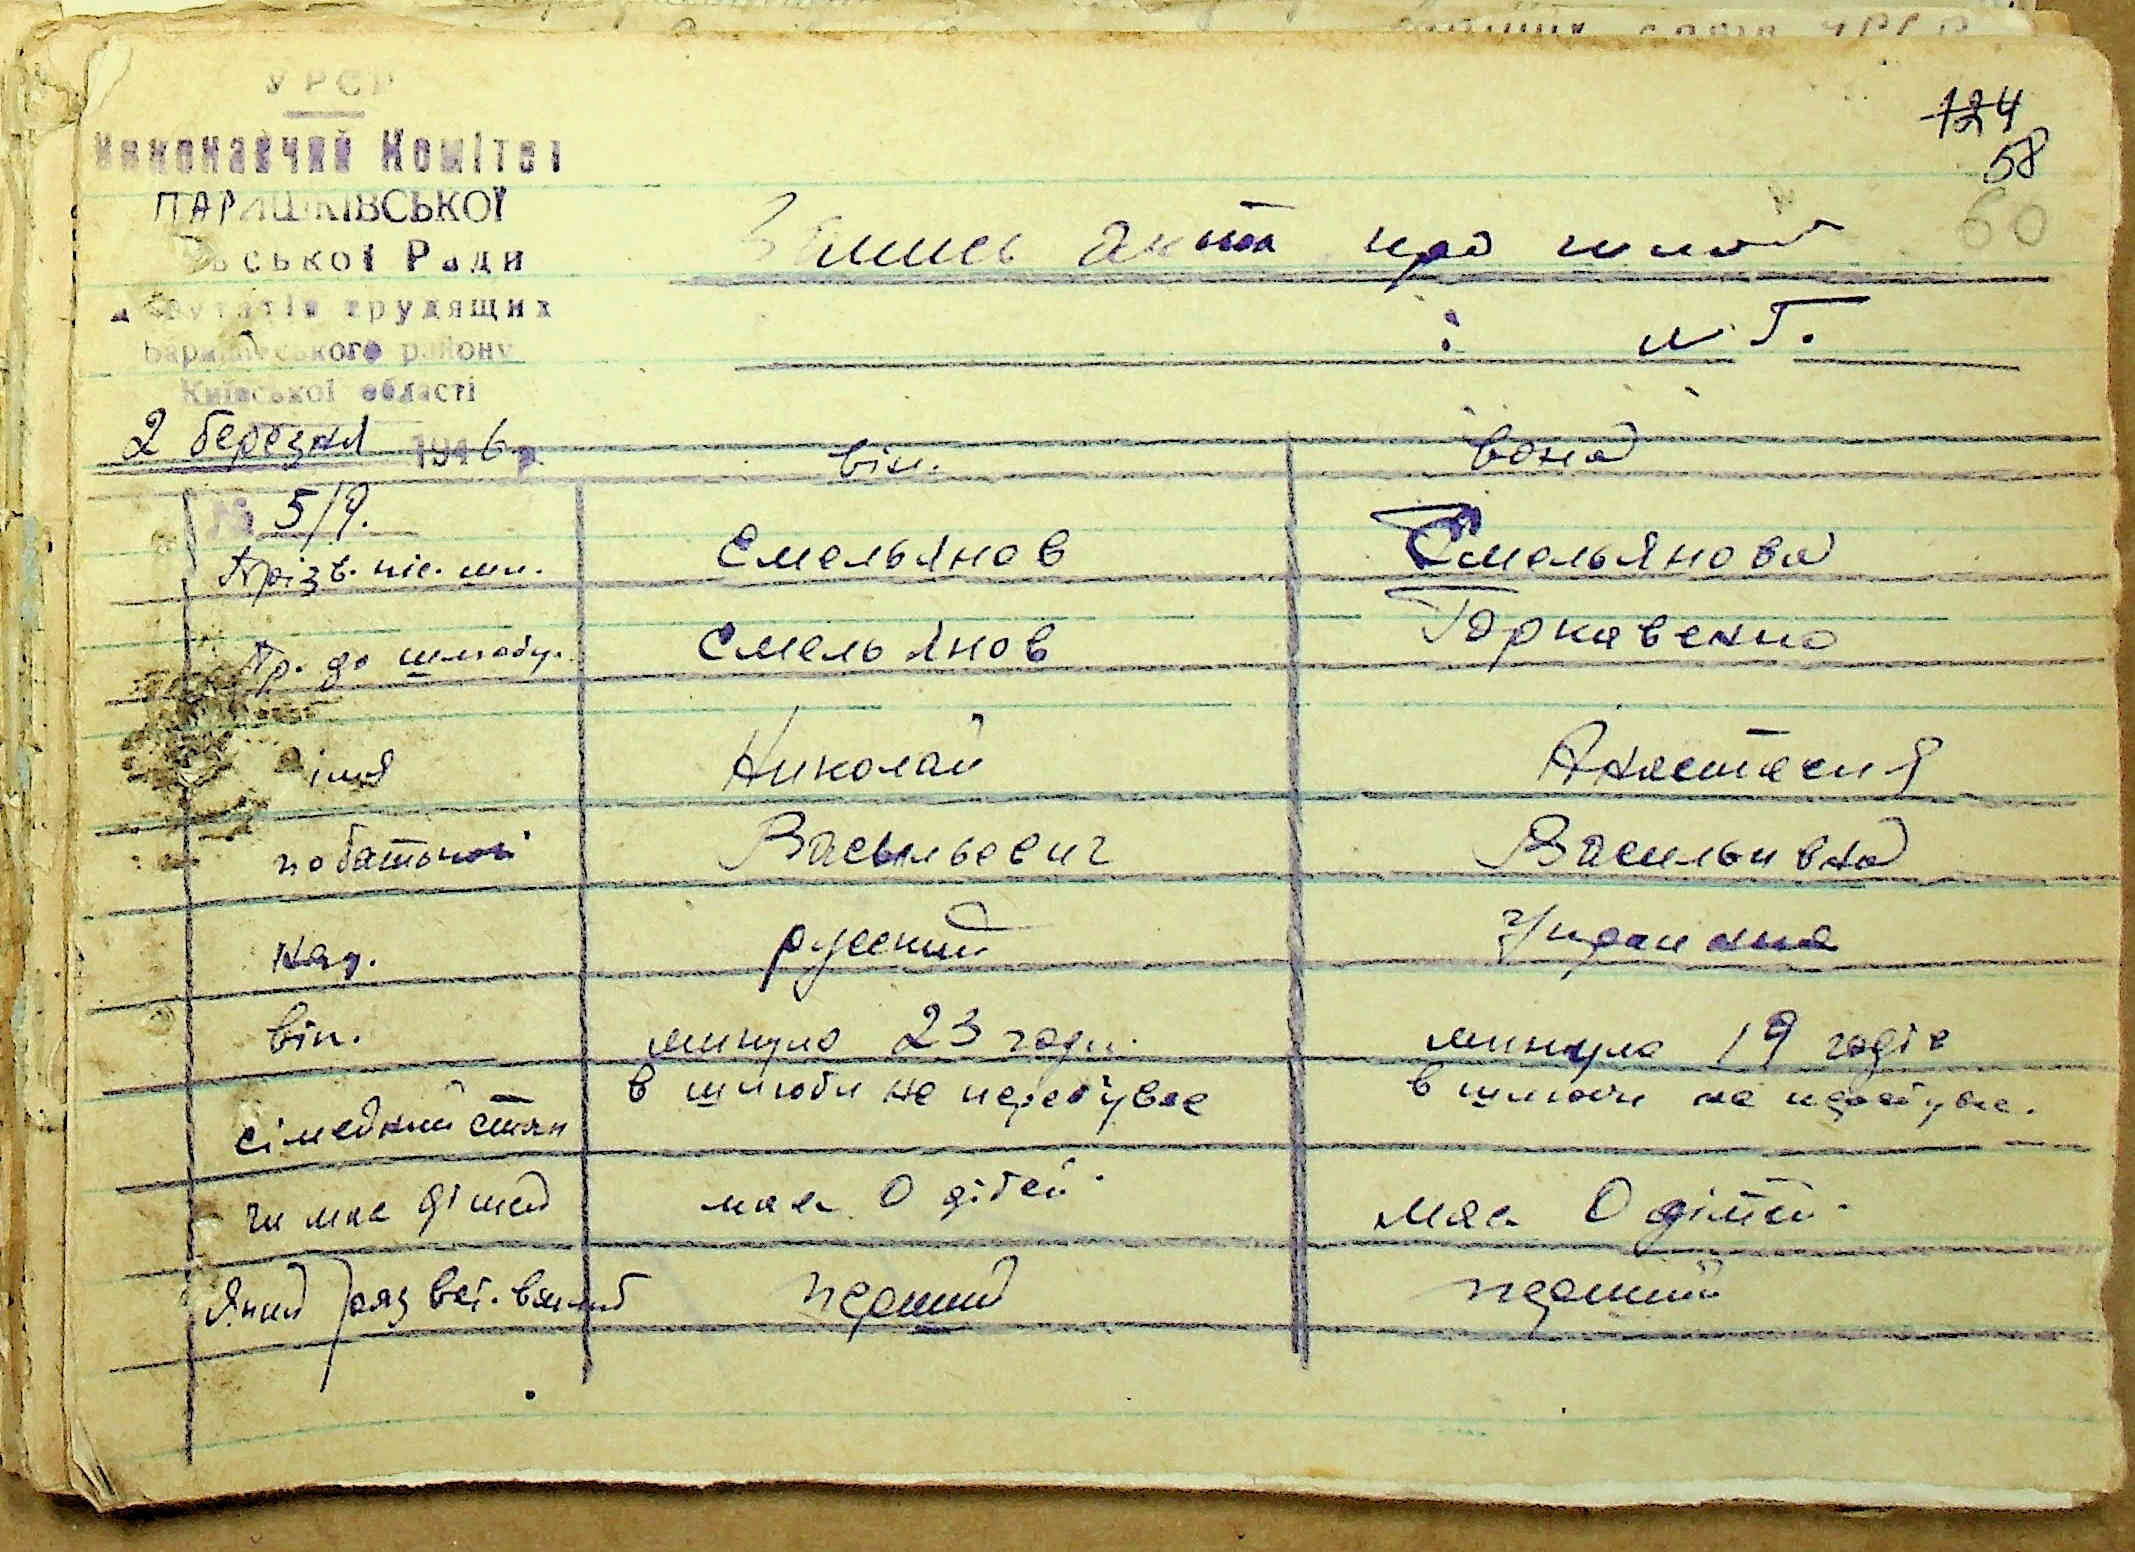 УРСР
Виконавчий Комітет
ПАРИШКІВСЬКОЇ
Сільської Ради
депутатів трудящих
Баришівського району
Київської області
124
58
60
Запись акта про шлюб
: № 5.
2 березня 1946 р.
він. вона
№ 5/9.
Прізв. піс. шл. Емельянов Емельянова
Пр. до шлюбу. Емельянов Горкавенко
імя Николай Анастасия
по батькові Васильевич Васильивна
нац. русский Украинка
вік. минуло 23 годи. минуло 19 годів
сімейний стан в шлюби не перебувае в шлюби не перебувае.
чи мае дітей мае 0 дітей. мае 0 дітей.
Який раз перший перший